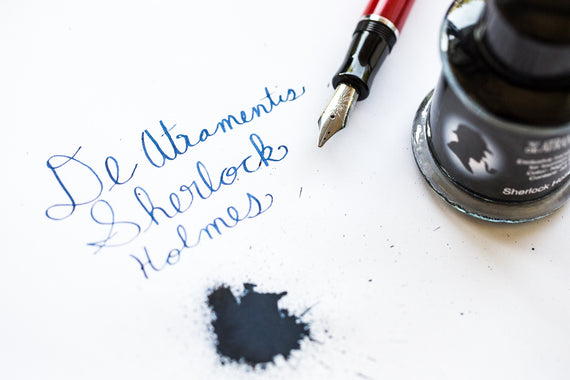 De Atramentis
Sherlock
Holmes
ATRAM
Sherlock Ho